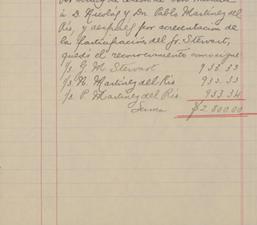 á D. Nicolás y Dn. Pablo Martinez del
Rio, y después por acrecentacion de
la participacion del Sr. Stewart,
quedó el reconocimiento
J. M. Stewart 933.33
N. Martinez del Rio 933.33
P. Martinez del Rio 933.34
Suma $2,800.00